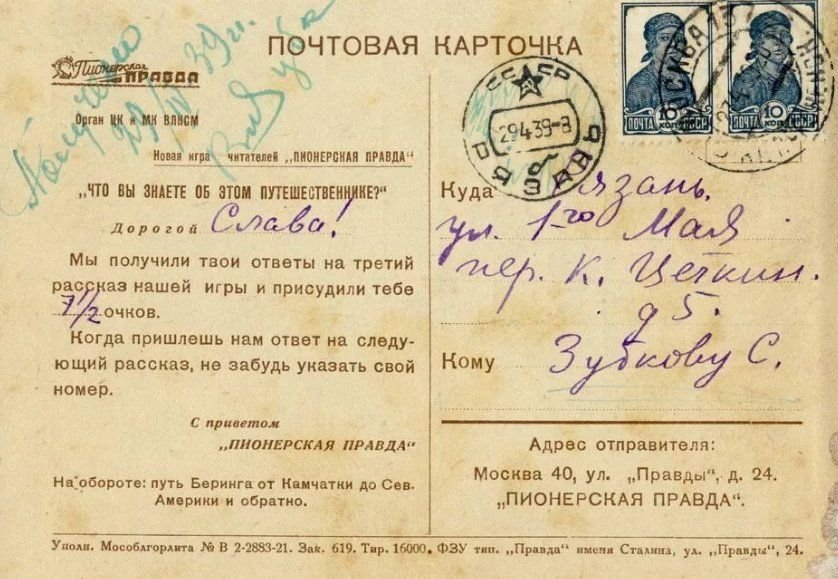 ПОЧТОВАЯ КАРТОЧКА
Пионерская
ПРАВДА
Орган ЦК и МК ВЛКСМ
Получено
29/IV 39 г.
Новая игра читателей „ПИОНЕРСКАЯ ПРАВДА“
„ЧТО ВЫ ЗНАЕТЕ ОБ ЭТОМ ПУТЕШЕСТВЕННИКЕ?“
Дорогой Слава!
Мы получили твои ответы на третий
рассказ нашей игры и присудили тебе
7 1/2 очков.
Когда пришлешь нам ответ на следу-
ющий рассказ, не забудь указать свой
номер.
С приветом
„ПИОНЕРСКАЯ ПРАВДА“
На обороте: путь Беринга от Камчатки до Сев.
Америки и обратно.
СССР
29.4.39-8
РЯЗАНЬ
МОСКВА
ПОЧТА 10 КОП СССР
ПОЧТА 10 КОП СССР
Куда Рязань.
ул. 1-го Мая
пер. К. Цеткин.
д 5.
Кому Зубкову С.
Адрес отправителя:
Москва 40, ул. „Правды“, д. 24.
„ПИОНЕРСКАЯ ПРАВДА“.
Уполн. Мособлгорлита № В 2-2883-21. Зак. 619. Тир. 16000. ФЗУ тип. „Правда“ имени Сталина, ул. „Правды“, 24.